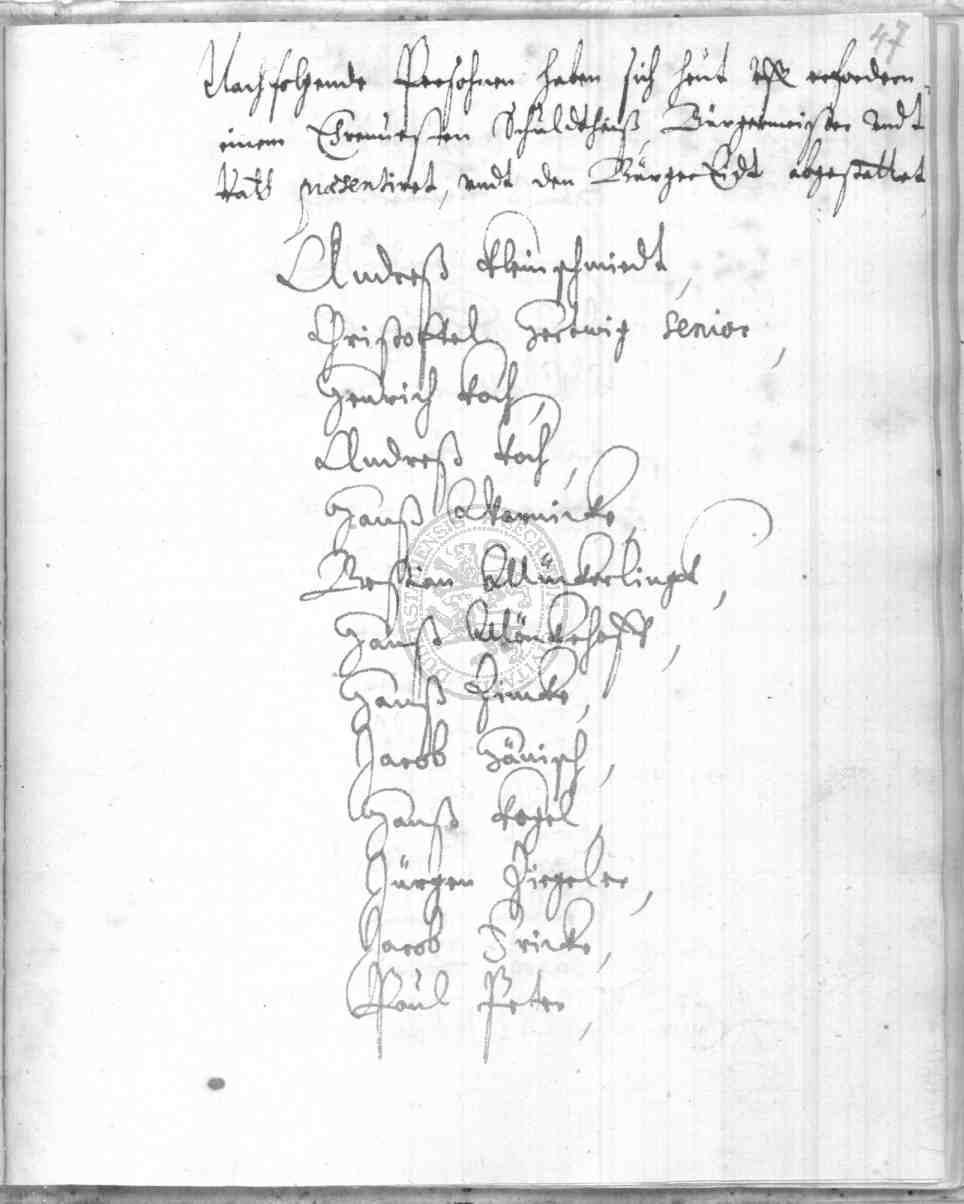 47
Nachfolgende Persohnen haben sich heüt vff erfordern
einem Ehrenuesten Schuldtheiß, Bürgermeister vndt
Rath præsentiret, vndt den BürgerEidt abgestattet
Andreß Kleinschmiedt,
Christoffel Hertwig Senior,
Henrich Koch,
Andreß Koch,
Hanß
Bastian
Hanß
Hanß Zimcke,
Jacob Hänisch,
Hanß Kogel,
Jürgen Ziegeler,
Jacob Fricke,
Paul Peter,